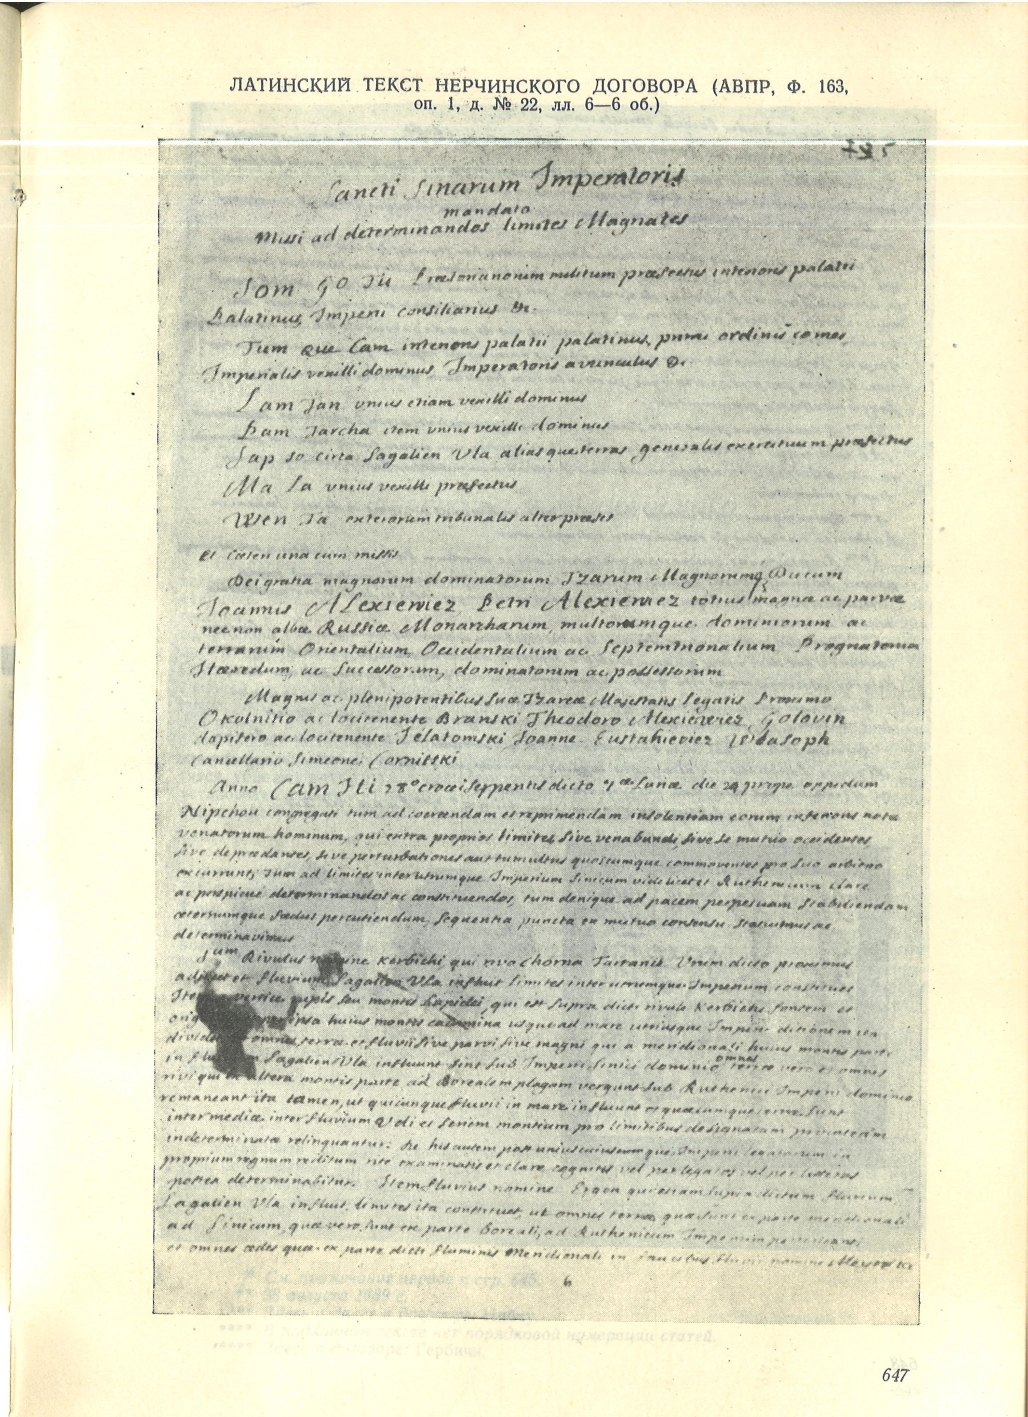 ЛАТИНСКИЙ ТЕКСТ НЕРЧИНСКОГО ДОГОВОРА (АВПР, Ф. 163,
оп. 1, д. № 22, лл. 6—6 об.)
Sancti Sinarum Imperatoris
mandato
Missi ad determinandos limites Magnates
Som Go Tu Praetorianorum militum praefectus interioris palatii
Palatinus, Imperii consiliarius &c.
Tum Que Cam interioris palatii palatinus, primi ordinis comes,
Imperialis vexilli dominus Imperatoris avunculus &c
Lam Tan unius etiam vexilli dominus
Pam Tarcha item unius vexilli dominus
Sap so circa Sagalien Ula aliasque terras generalis exercituum praefectus
Ma La unius vexilli praefectus
Wen Ta exteriorum tribunalis alter praeses
et caeteri una cum missis
Dei gratia magnorum dominatorum Tzarum Magnorumq Ducum
Joannis Alexiewiez Petri Alexiewiez totius magnae ac parvae
nec non albae Russiae Monarcharum, multorumque dominiorum ac
terrarum Orientalium, Occidentalium ac Septemtrionalium Prognatorum
Haeredum, ac Successorum, dominatorum ac possessorum
Magnis ac plenipotentibus suae Tzareae Majestatis legatis Proximo
Okolnitio ac locitenente Branski Theodoro Alexiewiez Golovin
dapifero ac locitenente Jelatomski Joanne Eustahieviez Wlasoph
Cancellario Simeone Cornitski
Anno Cam Hi 28° crocei serpentis dicto 7ae Lunae die 24 prope oppidum
Nipchou congregati tum ad coercendam et reprimendam insolentiam eorum inferioris notae
venatorum hominum, qui extra proprios limites, sive venabundi, sive se mutuo occidentes
sive depraedantes, sive perturbationes aut tumultus quoscumque commoventes pro suo arbitrio
excurrunt, tum ad limites inter utrumque Imperium Sinicum videlicet et Ruthenicum clare
ac perspicue determinandos ac constituendos, tum denique ad pacem perpetuam stabiliendam
aeternumque faedus percutiendum, sequentia puncta ex mutuo consensu statuimus ac
determinavimus
1um Rivulus nomine Kerbichi qui rivo Chorna Tartarice Urum dicto proximus
et fluvium Sagalien Ula influit limites inter utrumque Imperium constituet
rupis seu montis lapidei, qui est supra dicti rivuli Kerbichi fontem et
ipsa huius montis cacumina usque ad mare utriusque Imperii ditionem ita
omnes terrae et fluvii sive parvi sive magni qui a meridionali huius montis parte
in Sagalien Ula influunt sint sub Imperii Sinici dominio omnes terrae vero et omnes
rivi qui ex altera montis parte ad Borealem plagam vergunt sub Ruthenici Imperii dominio
remaneant ita tamen, ut quicunque fluvii in mare influunt et quaecumque terrae sunt
intermediae inter fluvium Udi et seriem montium pro limitibus designatam
indeterminatae relinquantur. De his autem post uniuscuiusque Imperii legatorum in
proprium regnum reditum rite examinatis et clare cognitis vel per legatos vel per litteras
postea determinabitur. Item fluvius nomine Ergon qui etiam supra dictum fluvium
Sagalien Ula influit, limites ita constituet, ut omnes terrae quae sunt ex parte meridionali
ad Sinicum, quae vero sunt ex parte Boreali, ad Ruthenicum Imperium
et omnes aedes quae ex parte dicti fluminis Meridionali in faucibus fluvii nomine
6
647